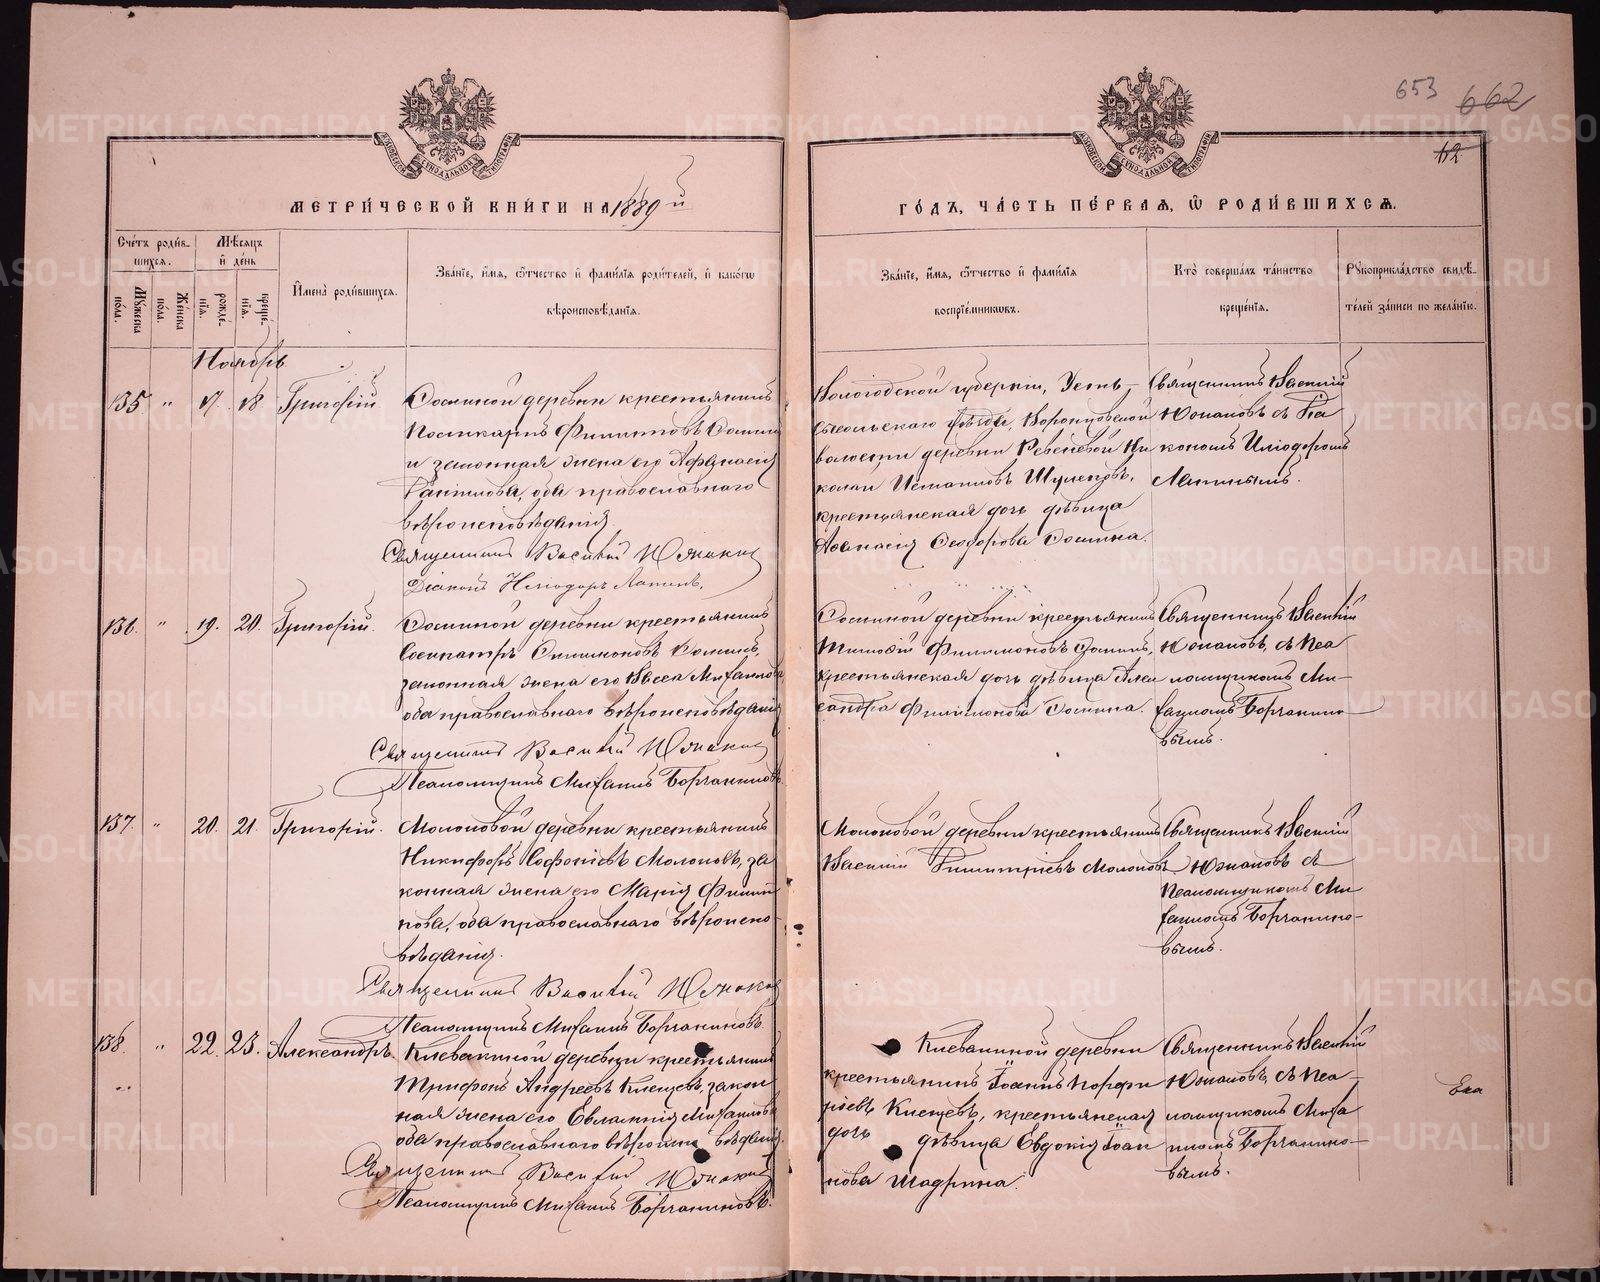 653 662
62
МЕТРИ́ЧЕСКОЙ КНИ́ГИ НА 1889 й
ГО́ДЪ, ЧА́СТЬ ПЕ́РВАЯ, Ѡ РОДИ́ВШИХСЯ.
Сче́тъ роди́в-
шихся.
Мѣ́сяцъ
и́ де́нь
Мꙋ́жеска
по́ла.
Же́нска
по́ла.
рожде́-
нїя.
креще́-
нїя.
И҆мена̀ роди́вшихся.
Зва́нїе, и҆́мѧ, ѻ҆́тчество и҆ фами́лїѧ роди́телей, и҆ како́гѡ
вѣроисповѣ́данїѧ.
Зва́нїе, и҆́мѧ, ѻ҆́тчество и҆ фами́лїѧ
воспрїе́мникѡвъ.
Кто̀ соверша́лъ та́инство
креще́нїѧ.
Рꙋкоприкла́дство свидѣ́-
телей за́писи по жела́нїю.
Ноябрь
135 " 17. 18 Григорій
Сосниной деревни крестьянинъ
Поликарпъ Филиповъ Соснинъ
и законная жена его Афанасія
Даніилова, оба православнаго
вѣроисповѣданія
Священникъ Василій Южаковъ
Діаконъ Иліодоръ Лапинъ.
Вологодской губерніи, Усть-
сысольскаго уѣзда, Воронцовской
волости деревни Ни
колай
крестьянская дочь дѣвица
Афанасія Ѳеодорова Соснина.
Священникъ Василій
Южаковъ съ Діа
кономъ Иліодоромъ
Лапинымъ.
136. " 19. 20. Григорій.
Сосниной деревни крестьянинъ
Сосипатръ Соснинъ,
законная жена его Васса Михаилова
оба православнаго вѣроисповѣданія
Священникъ Василій Южаковъ
Псаломщикъ Михаилъ Борчаниновъ
Сосниной деревни крестьянинъ
Филимоновъ Соснинъ,
крестьянская дочь дѣвица Алек
сандра Филимонова Соснина.
Священникъ Василій
Южаковъ, съ Пса
ломщикомъ Ми-
хаиломъ Борчанино-
вымъ.
137. " 20. 21. Григорій.
Молоковой деревни крестьянинъ
Никифоръ Софоніевъ Молоковъ, за
конная жена его Марія Филип
пова, оба православнаго вѣроиспо-
вѣданія.
Священникъ Василій Южаковъ
Псаломщикъ Михаилъ Борчаниновъ
Молоковой деревни крестьянинъ
Василій Димитріевъ Молоковъ
Священникъ Василій
Южаковъ съ
Псаломщикомъ Ми
хаиломъ Борчанино-
вымъ.
138. " 22. 23. Александръ.
Киевакиной деревни крестьянинъ
Трифонъ Андреевъ Клещевъ, закон
ная жена его Евлампія Михаилова
оба православнаго вѣроисповѣданія.
Священникъ Василій Южаковъ
Псаломщикъ Михаилъ Борчаниновъ.
деревни
крестьянинъ Іоаннъ Порфи
рьевъ Клещевъ, крестьянская
дочь дѣвица Евдокія Іоан
нова Шадрина.
Священникъ Василій
Южаковъ, съ Пса-
ломщикомъ Миха
иломъ Борчанино-
вымъ.